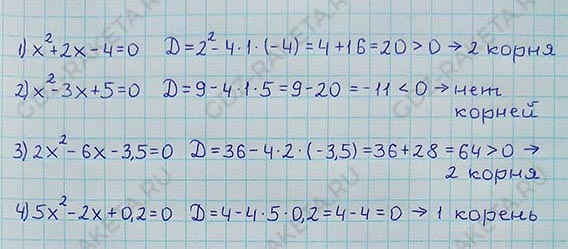 1) x²+2x-4=0 D=2²-4·1·(-4)=4+16=20>0→2 корня
2) x²-3x+5=0 D=9-4·1·5=9-20=-11<0→нет
корней
3) 2x²-6x-3,5=0 D=36-4·2·(-3,5)=36+28=64>0→
2 корня
4) 5x²-2x+0,2=0 D=4-4·5·0,2=4-4=0→1 корень